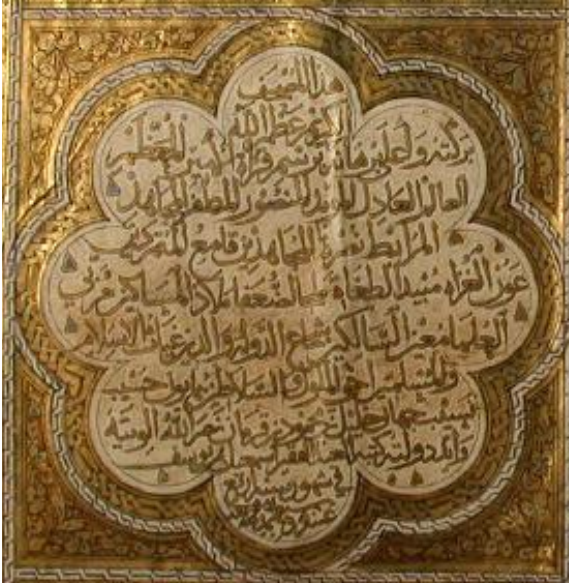 هذا المصحف
الكريم عظم الله
بركته وأعلى برهانه برسم قراة الأمير المعظم
العالم العادل المويد المنصور المظفر المجاهد
المرابط نصرة المجاهدين قامع المتمردين
عون الغزاه مبيد الطغاة ملجا الضعفا ملاذ المساكين مربي
العلما معز السالكين شجاع الدولة والدين غياث الاسلام
والمسلمين الملوك و السلاطين حسيب
نسيب خليل بن محمود بن قرمان الله الويته
دولته كتبه الفقير اسمعيل بن يوسف
في شهور سنه اربع
عشر